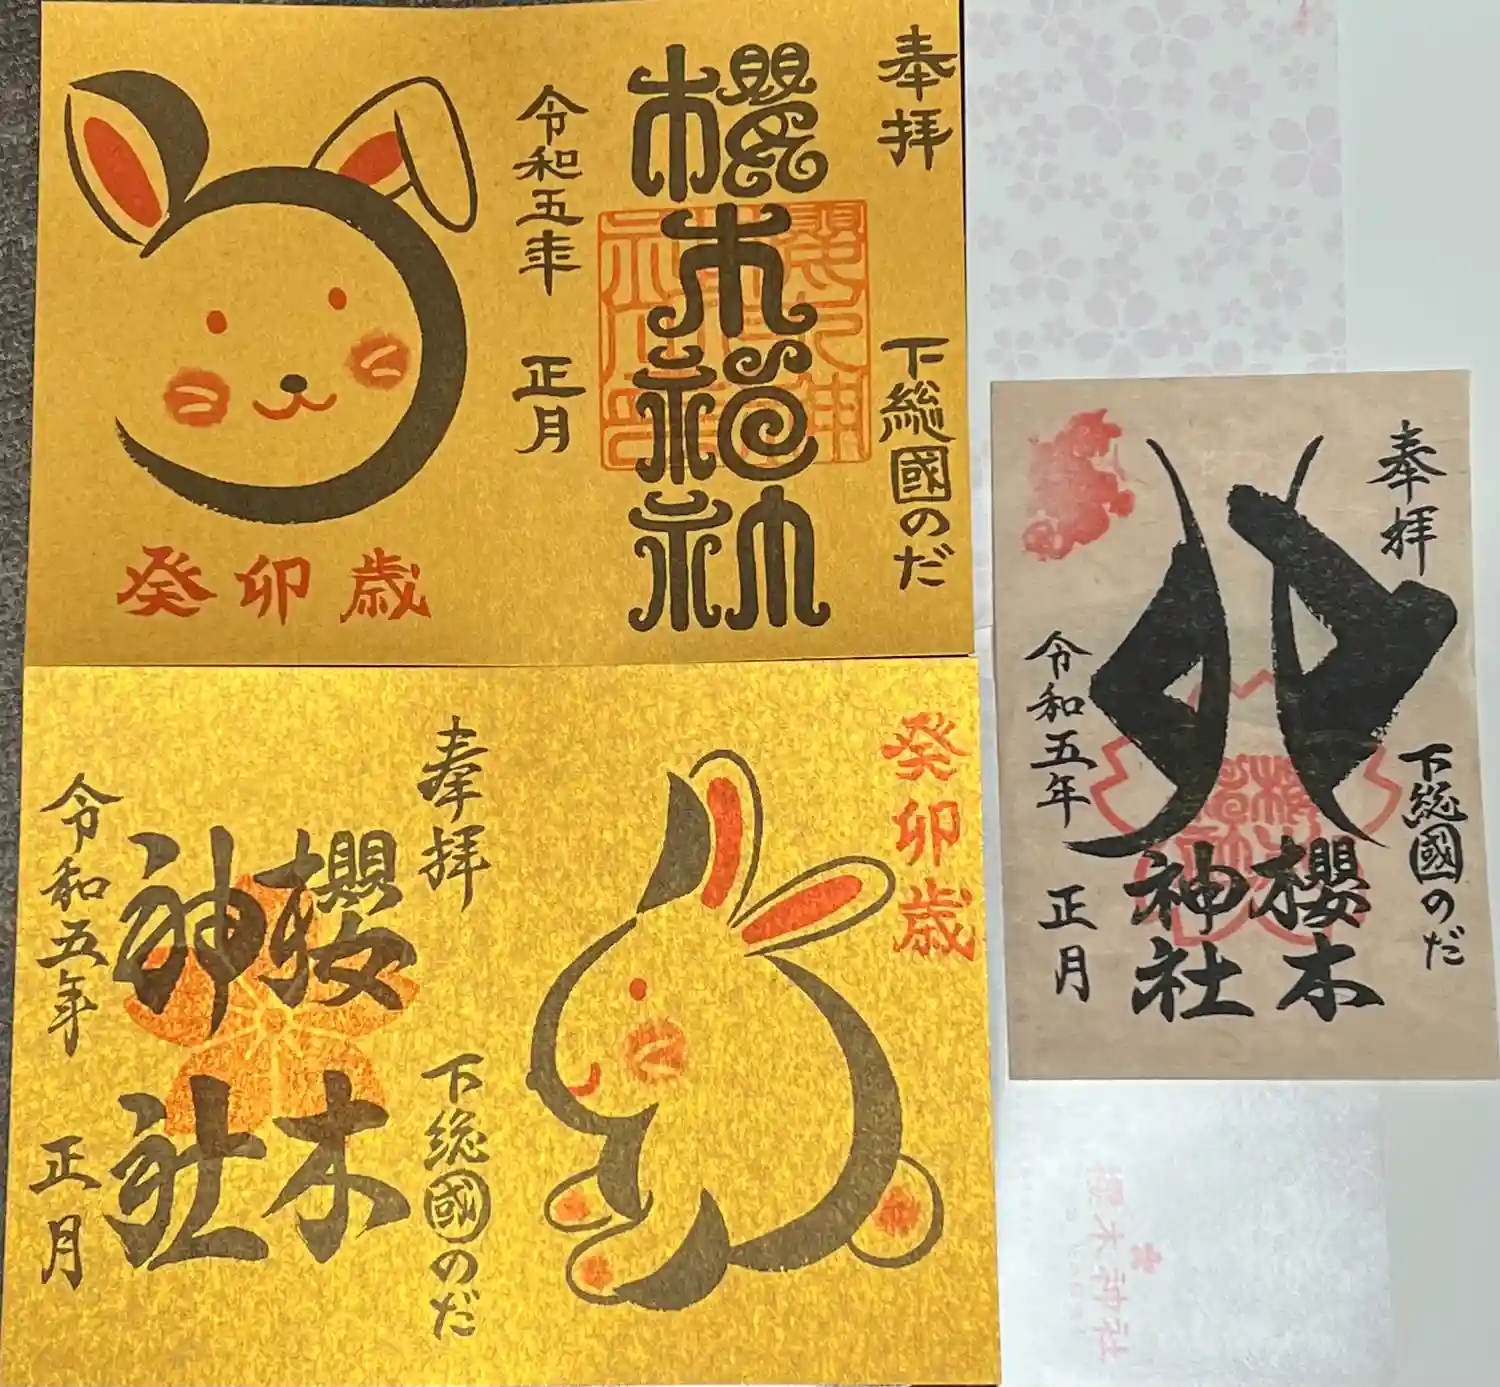 奉拝
下総國のだ
櫻木神社
令和五年 正月
癸卯歳
癸卯歳
奉拝
下総國のだ
櫻木
神社
令和五年 正月
奉拝
下総國のだ
櫻木
神社
令和五年 正月
櫻木神社